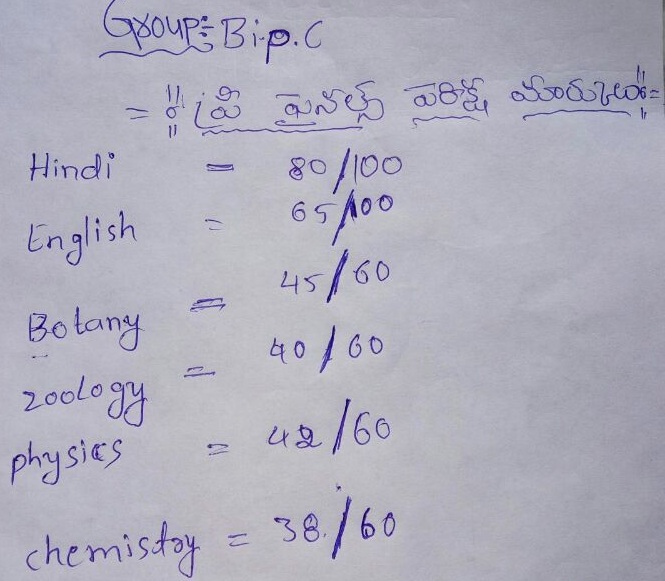 Group:- Bi.p.C
= "ః ప్రి ఫైనల్స్ పరీక్ష మార్కులు ః" =
Hindi = 80/100
English = 65/100
Botany = 45/60
zoology = 40/60
physics = 42/60
chemistry = 38./60